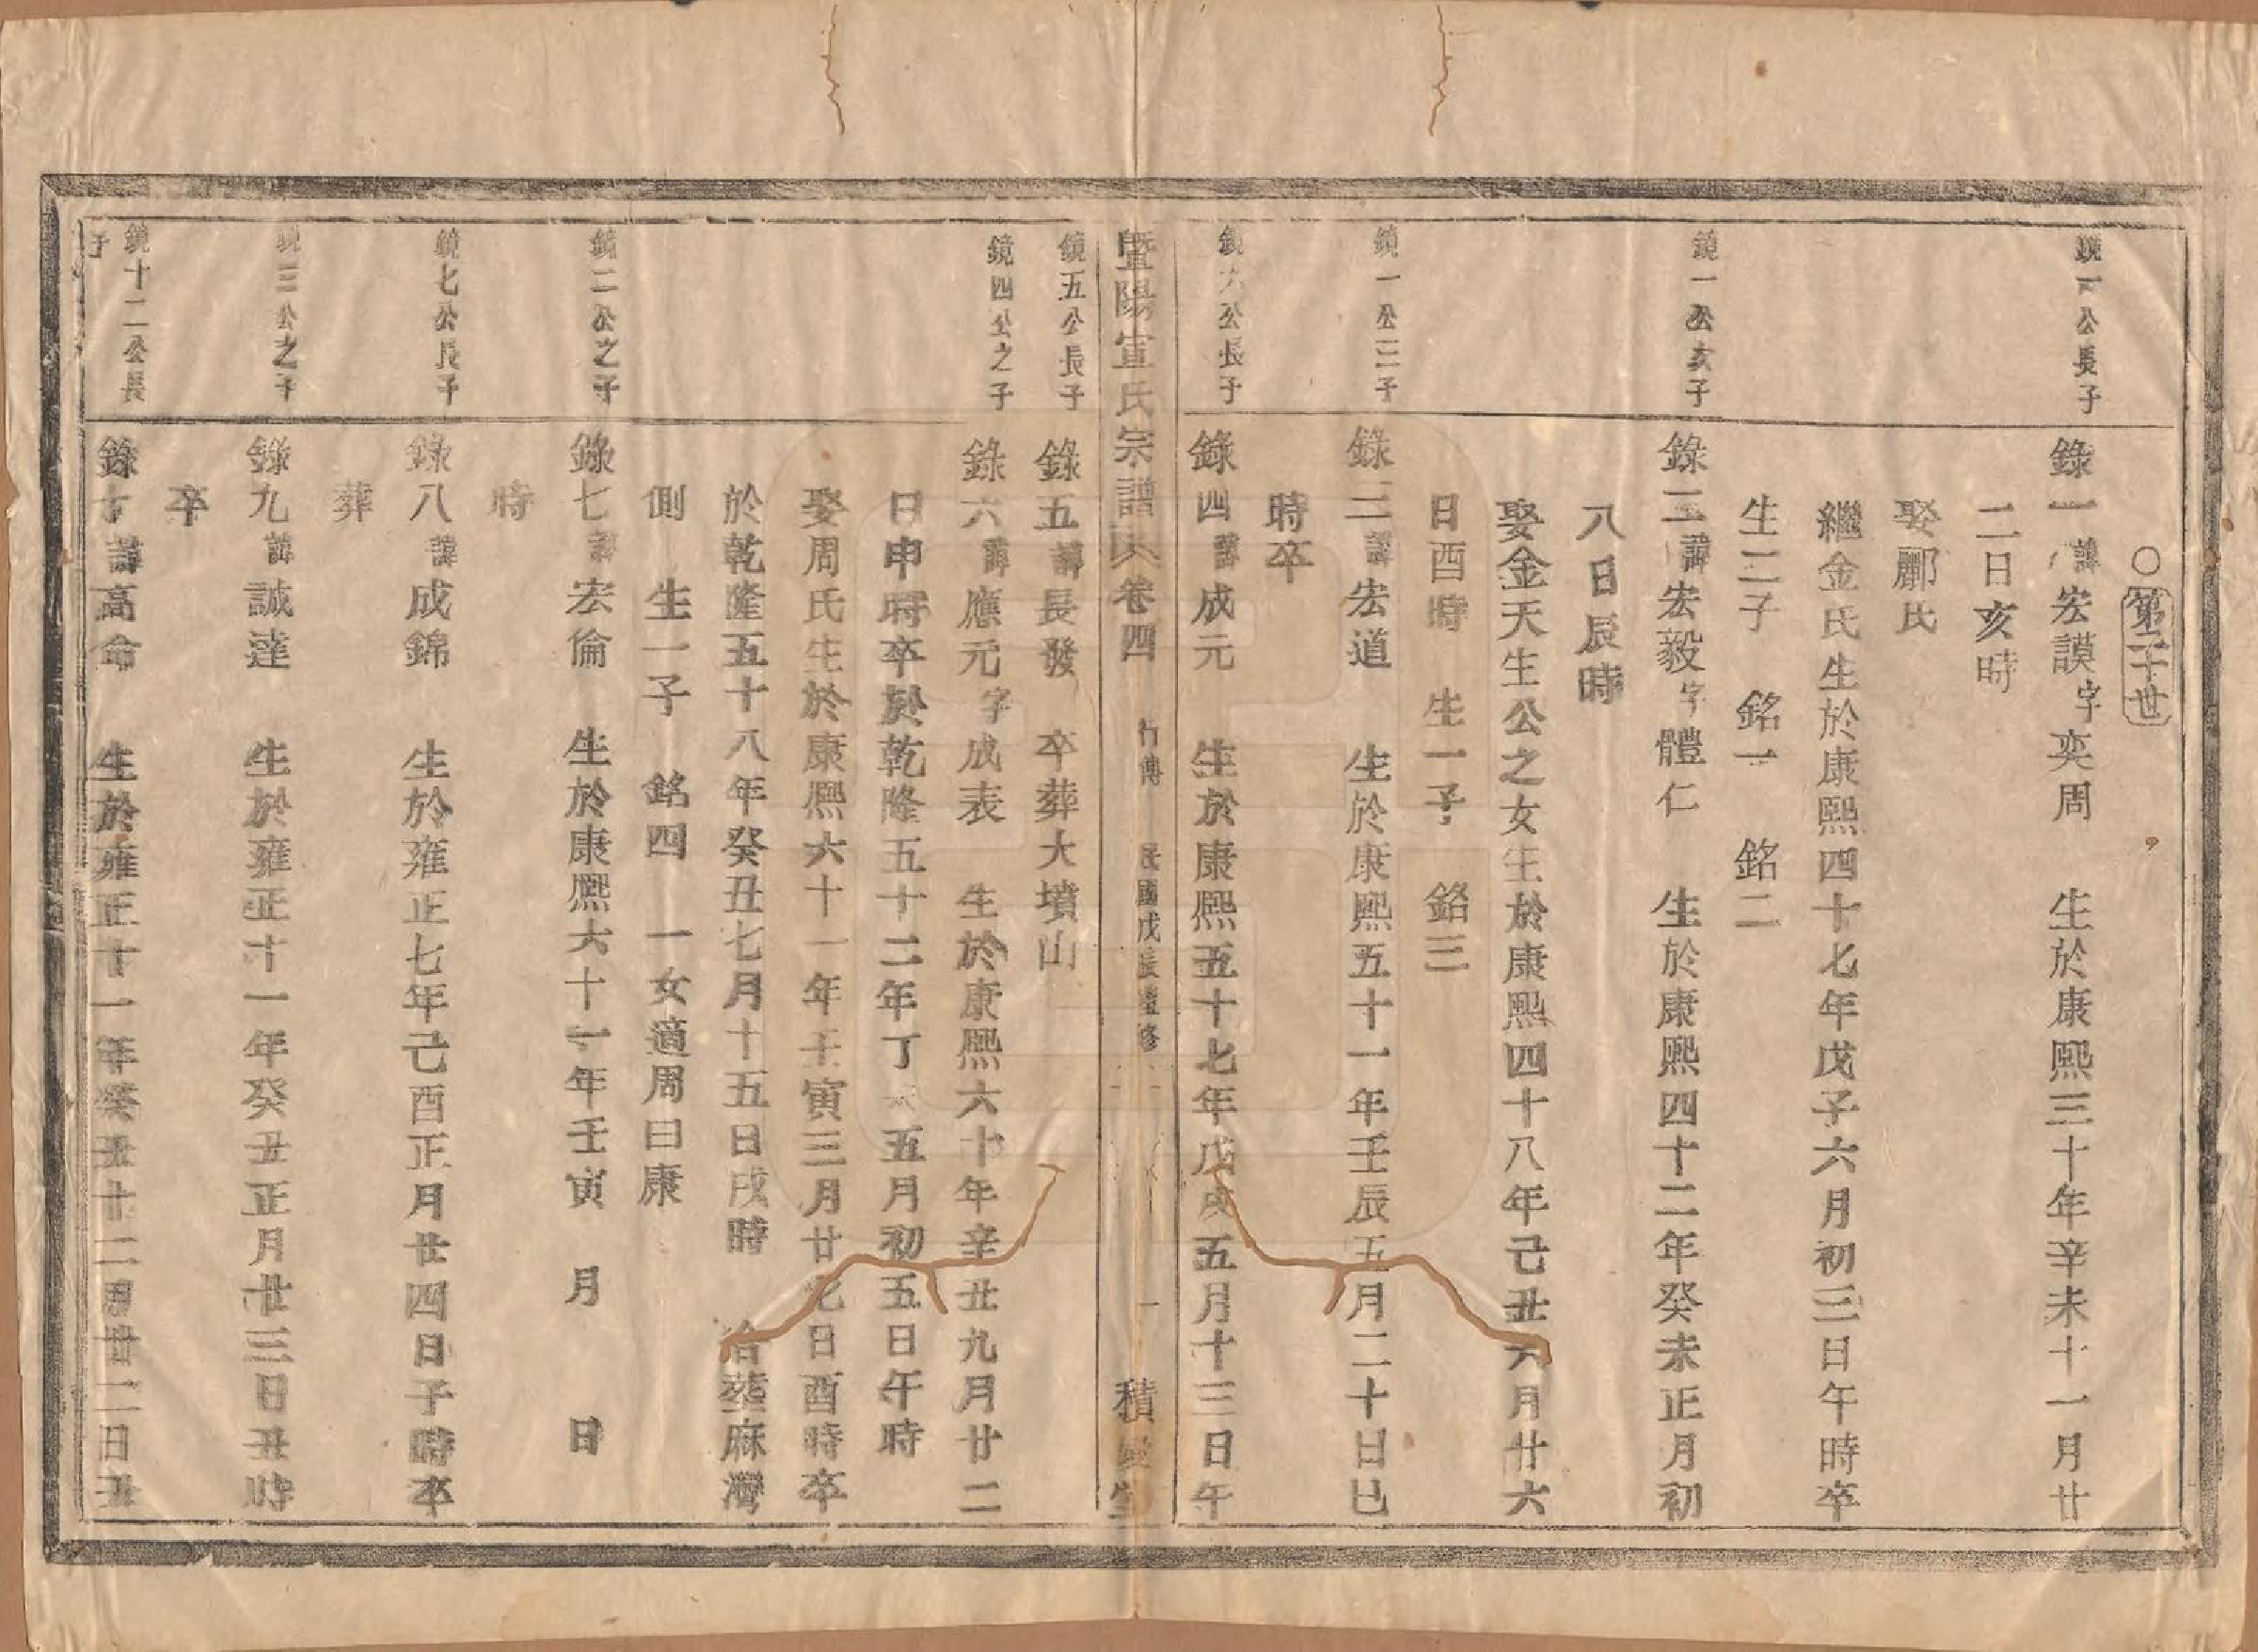 ○第二十世
鏡一公長子
錄一諱宏謨字奕周　生於康熙三十年辛未十一月廿
二日亥時
娶酈氏
繼金氏生於康熙四十七年戊子六月初三日午時卒
生二子　銘一　銘二
鏡一公次子
錄二諱宏毅字體仁　生於康熙四十二年癸未正月初
八日辰時
娶金天生公之女生於康熙四十八年己丑六月廿六
日酉時　生一子　銘三
鏡一公三子
錄三諱宏道　生於康熙五十一年壬辰五月二十日巳
時卒
鏡六公長子
錄四諱成元　生於康熙五十七年戊戌五月十三日午
暨陽宣氏宗譜　卷四　行傳　民國戊辰重修　一　積慶堂
鏡五公長子
錄五諱長發　卒葬大墳山
鏡四公之子
錄六諱應元字成表　生於康熙六十年辛丑九月廿二
日申時卒於乾隆五十二年丁　五月初五日午時
娶周氏生於康熙六十一年壬寅三月廿七日酉時卒
於乾隆五十八年癸丑七月十五日戌時　合塟麻灣
側　生一子　銘四　一女適周曰康
鏡二公之子
錄七諱宏倫　生於康熙六十一年壬寅　月　日
時
鏡七公長子
錄八諱成錦　生於雍正七年己酉正月廿四日子時卒
葬
鏡三公之子
錄九諱誠達　生於雍正十一年癸丑正月廿三日丑時
卒
鏡十二公長
子
錄十諱高命　生於雍正十一年癸丑十二月廿二日丑